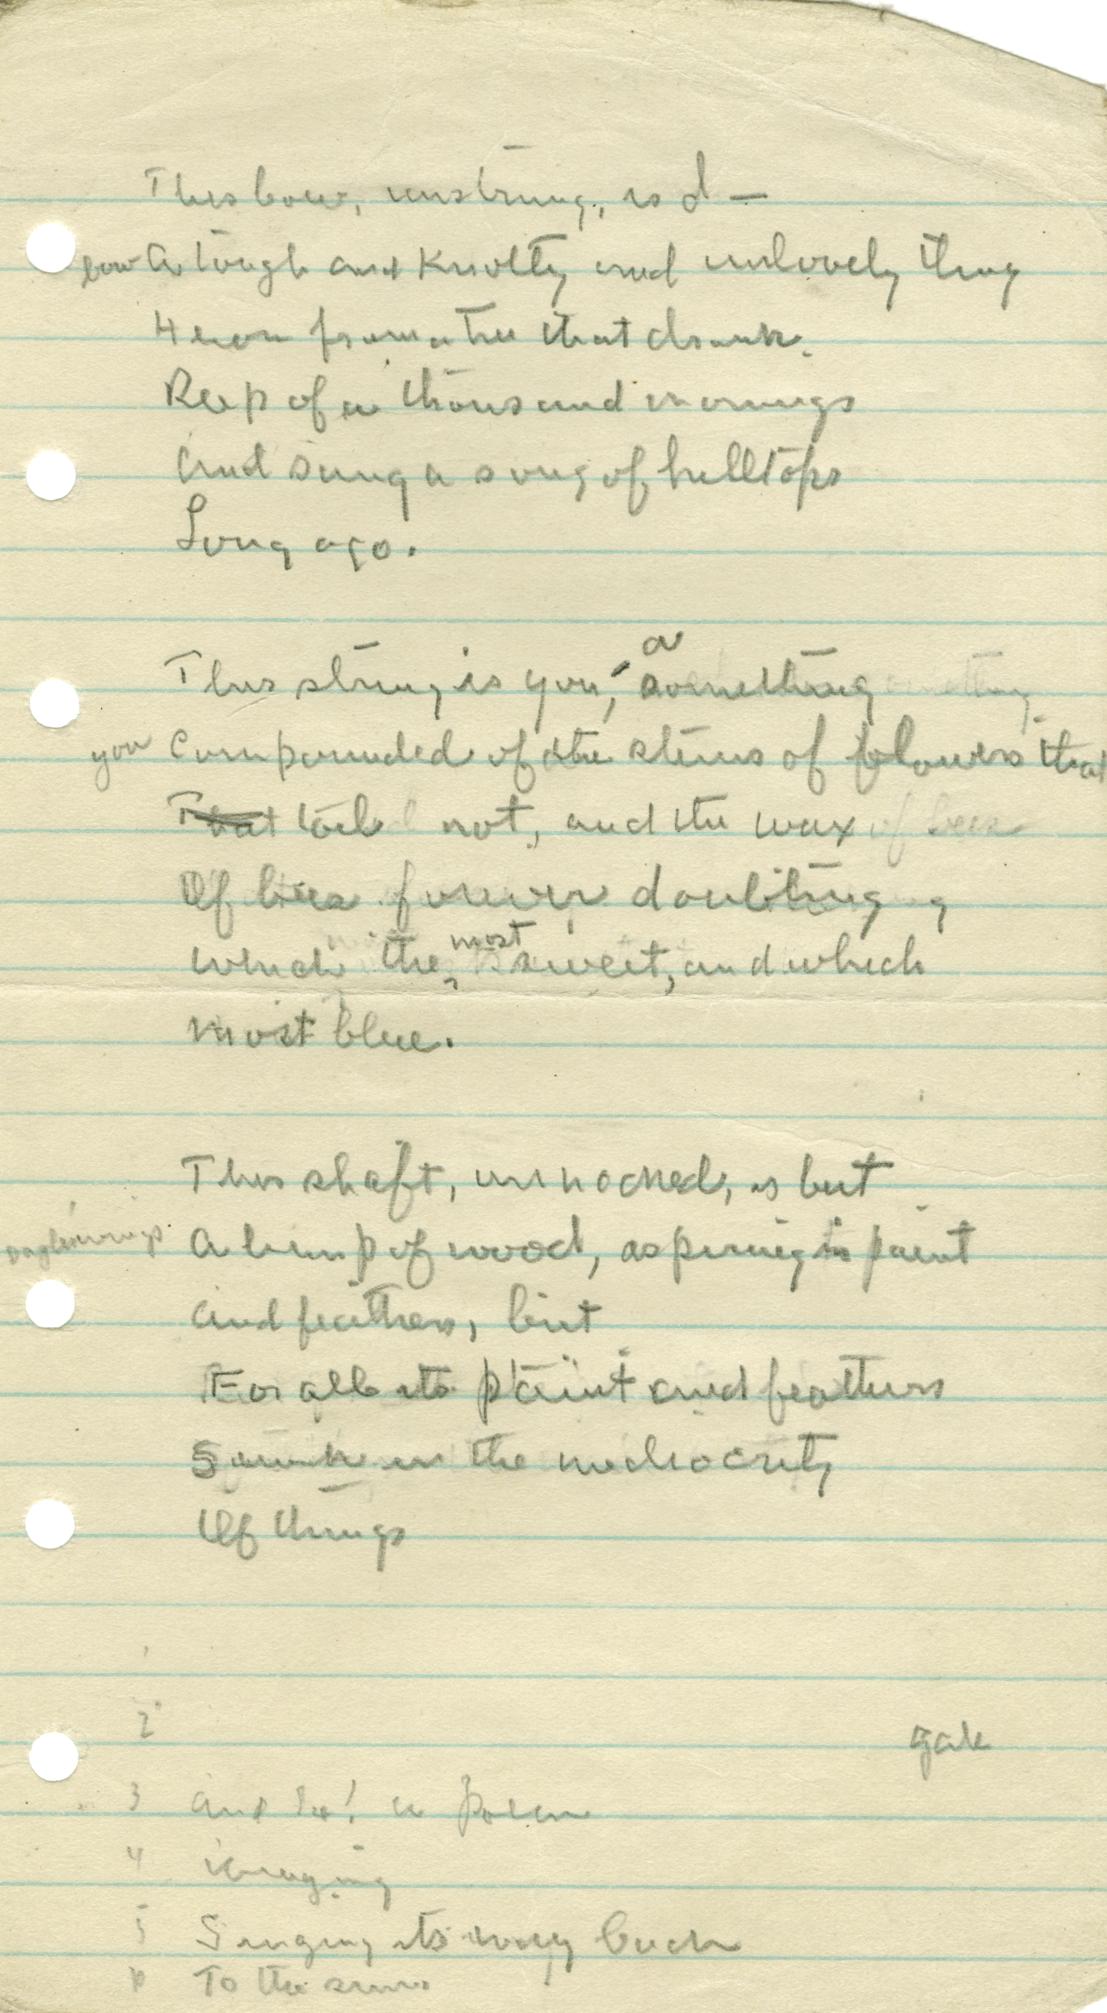 This bow, unstrung, is I —
bow A tough and knotty and unlovely thing
Hewn from a tree that drank
Deep of a thousand mornings
And sang a song of hilltops
Long ago.
a
This string is you, something
you Compounded of the stems of flowers that
That toil not, and the wax of bees
Of bees forever doubting
most
Which the sweet, and which
most blue.
This shaft, unnocked, is but
A lump of wood, aspiring in paint
And feathers, but
For all its paint and feathers
Sunk in the mediocrity
Of things
1
2
gak
3 And lo! a poem
4 Winging
5 Singing its way back
6 To the sun.